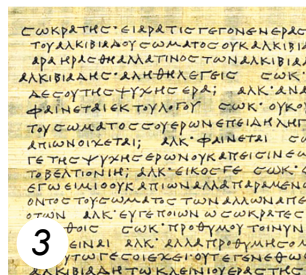 ΣΩΚΡΑΤΗΣ·ΕΙΑΡΑΤΙΣΓΕΓΟΝΕΡΑΣ
ΤΟΥΑΛΚΙΒΙΑΔΟΥΣΩΜΑΤΟΣΟΥΚΑΛΚΙΒΙΑ
ΑΡΑΗΡΑΣΘΗΑΛΛΑΤΙΝΟΣΤΩΝΑΛΚΙΒΙΑΔ
ΑΛΚΙΒΙΑΔΗΣ·ΑΛΗΘΗΛΕΓΕΙΣ ΣΩΚ
ΔΕΣΟΥΤΗΣΨΥΧΗΣΕΡΑ; ΑΛΚ·ΑΝΑ
ΦΑΙΝΕΤΑΙΕΚΤΟΥΛΟΓΟΥ ΣΩΚ·ΟΥΚΟ
ΤΟΥΣΩΜΑΤΟΣΣΟΥΕΡΩΝΕΠΕΙΔΗΛΗΓ
ΑΠΙΩΝΟΙΧΕΤΑΙ; ΑΛΚ·ΦΑΙΝΕΤΑΙ ΣΩ
ΓΕΤΗΣΨΥΧΗΣΕΡΩΝΟΥΚΑΠΕΙΣΙΝΕΩ
ΤΟΒΕΛΤΙΟΝΙΗ; ΑΛΚ·ΕΙΚΟΣΓΕ ΣΩΚ·
ΕΓΩΕΙΜΙΟΟΥΚΑΠΙΩΝΑΛΛΑΠΑΡΑΜΕΝ
ΟΝΤΟΣΤΟΥΣΩΜΑΤΟΣΤΩΝΑΛΛΩΝΑΠΕ
ΟΤΩΝ ΑΛΚ·ΕΥΓΕΠΟΙΩΝΩΣΩΚΡΑΤΕΣ
ΣΩΚ·ΠΡΟΘΥΜΟΥΤΟΙΝΥΝ
ΕΙΝΑΙ ΑΛΚ·ΑΛΛΑΠΡΟΘΥΜΗΣΟ
ΥΤΩΓΕΣΟΙΕΧΕΙΟΥΤΕΓΕΝΕΘ
ΑΛΚΙΒΙΑΔΗΤΩΚΛΕΙΝΙΟΥΕΡΑΣΤΗΣ
3